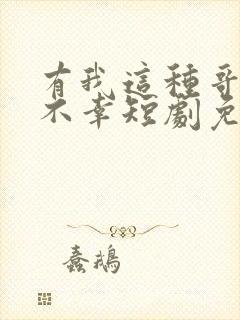 有我這種哥
不幸短劇免
蠢鵝